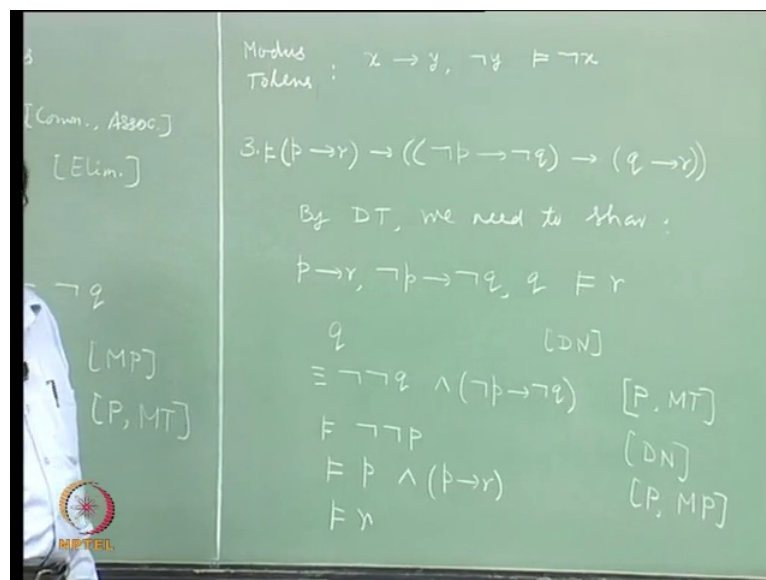 s
[Comm., Assoc.]
[Elim.]
¬ q
[MP]
[P, MT]
Modus
Tolens : x → y, ¬y ⊨ ¬x
3. ⊨ (p → r) → ((¬p → ¬q) → (q → r))
By DT, we need to show :
p → r, ¬p → ¬q, q ⊨ r
q [DN]
≡ ¬¬q ∧ (¬p → ¬q) [P, MT]
⊨ ¬¬p [DN]
⊨ p ∧ (p → r) [P, MP]
⊨ r
NPTEL